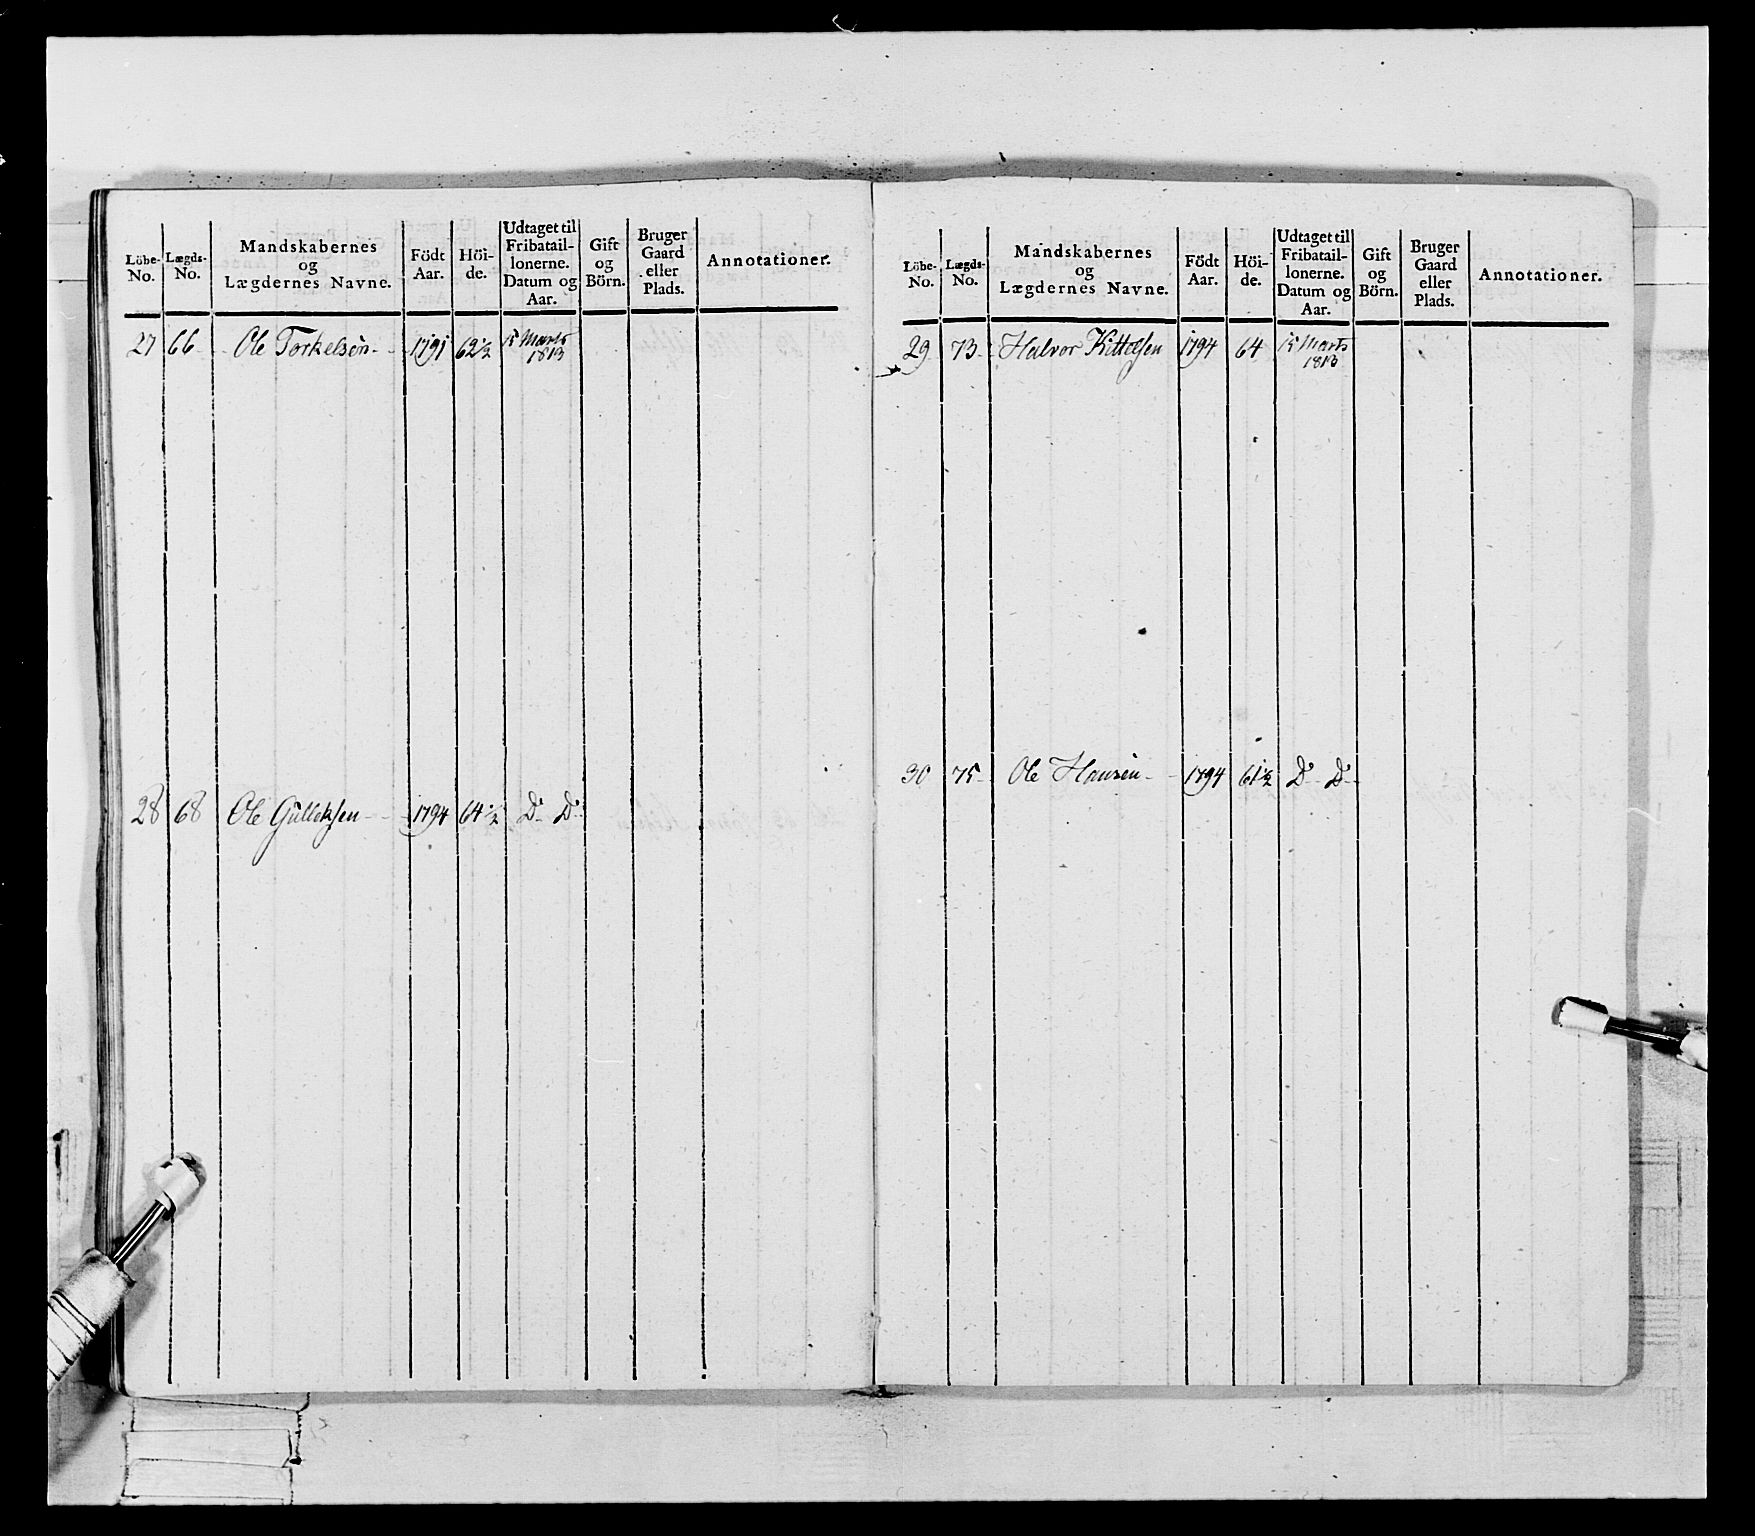 Löbe- No.
Lægds- No.
Mandskabernes og Lægdernes Navne.
Födt Aar.
Höi- de.
Udtaget til Fribatail- lonerne. Datum og Aar.
Gift og Börn.
Bruger Gaard eller Plads.
Annotationer.
27 66 Ole Torkelsen 1791 62½ 15 Marts 1813
28 68 Ole Gülleksen 1794 64½ Do Do
Löbe- No.
Lægds- No.
Mandskabernes og Lægdernes Navne.
Födt Aar.
Höi- de.
Udtaget til Fribatail- lonerne. Datum og Aar.
Gift og Börn.
Bruger Gaard eller Plads.
Annotationer.
29 73 Halvor Kittelsen 1794 64 15 Marts 1813
30 75 Ole Hansen 1794 61½ Do Do